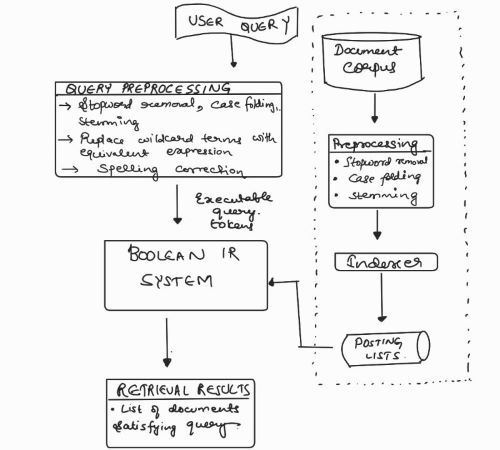 USER QUERY
QUERY PREPROCESSING
→ Stopword removal, case folding,
stemming
→ Replace wildcard terms with
equivalent expression
→ Spelling correction
Executable
query
tokens
BOOLEAN IR
SYSTEM
RETRIEVAL RESULTS
• List of documents
satisfying query
Document
Corpus
Preprocessing
• Stopword removal
• Case folding
• stemming
Indexer
POSTING
LISTS